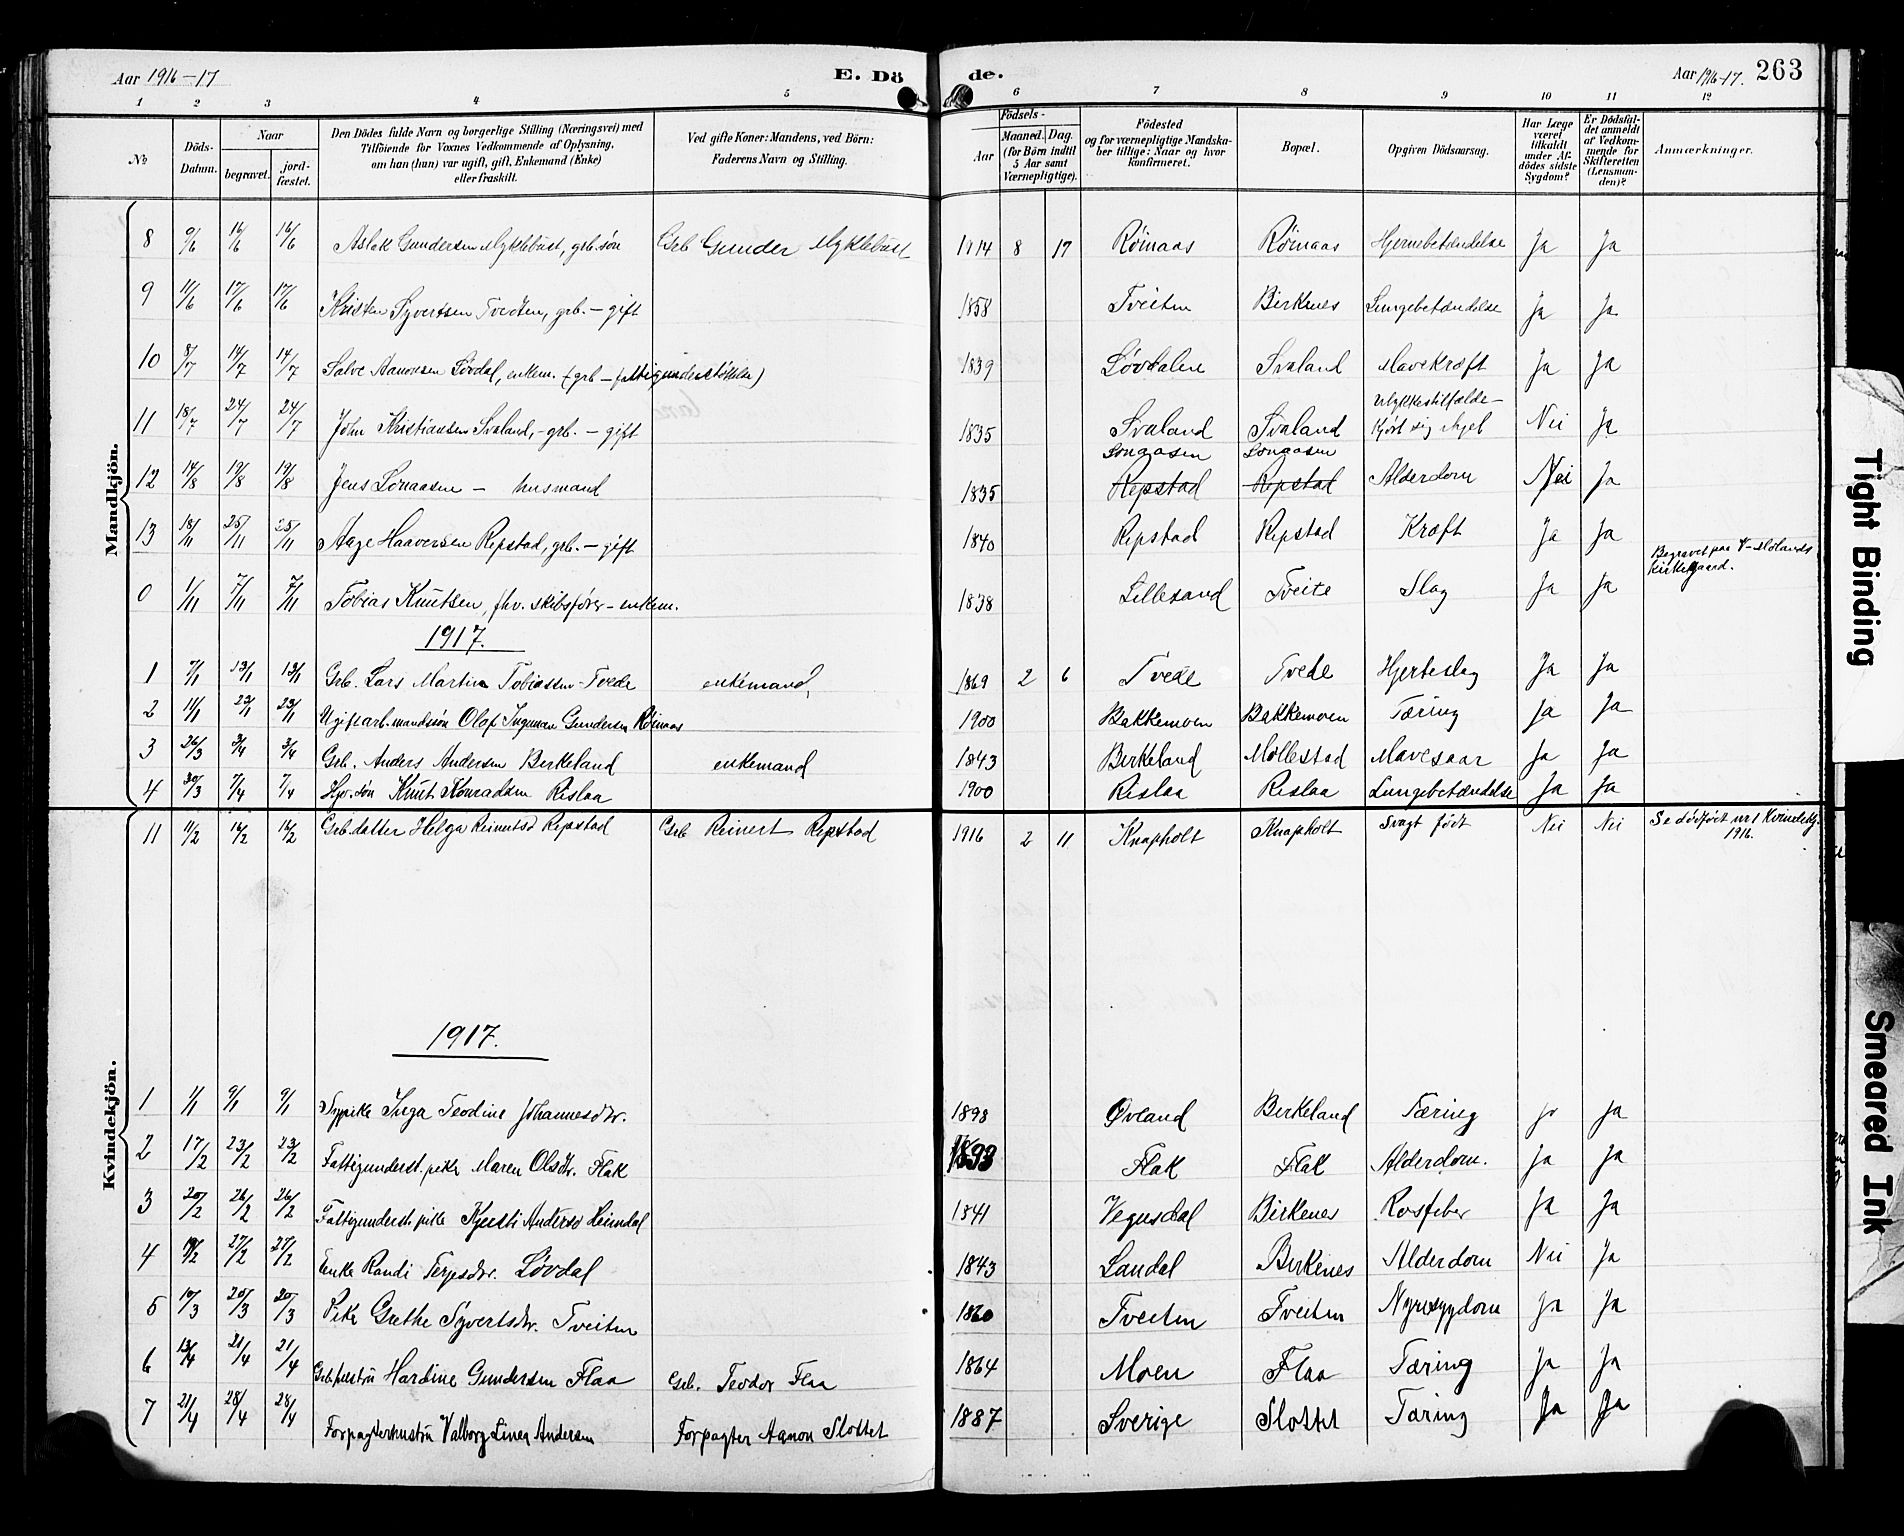 Aar 1916-17
E. Dö
de.
Aar 1916-17. 263
1 2 3 4 5 6 7 8 9 10 11 12
No
Döds-Datum.
Naar
begravet.
jord-fæstet.
Den Dödes fulde Navn og borgerlige Stilling (Næringsvei) med
Tilföiende for Voxnes Vedkommende af Oplysning,
om han (hun) var ugift, gift, Enkemand (Enke)
eller fraskilt.
Ved gifte Koner: Mandens, ved Börn:
Faderens Navn og Stilling.
Födsels-
Aar
Maaned. Dag.
(for Börn indtil
5 Aar samt
Værnepligtige).
Födested
og for værnepligtige Mandska-
ber tillige: Naar og hvor
konfirmeret.
Bopæl.
Opgiven Dödsaarsag.
Har Læge
været
tilkaldt
under Af-
dödes sidste
Sygdom?
Er Dödsfal-
det anmeldt
af Vedkom-
mende for
Skifteretten
(Lensman-
den)?
Anmærkninger.
Mandkjön.
8 9/6 16/6 16/6 Aslak Gundersen Myklebust, grb. søn Grb Gunder Myklebust 1914 8 17 Røinaas Røinaas Hjernebetændelse Ja Ja
9 11/6 17/6 17/6 Kristen Syvertsen Tveiten, grb. - gift 1858 Tveiten Birkenes Lungebetændelse Ja Ja
10 8/7 14/7 14/7 Salve Aanonsen Løvdal, enkem. (grb - fattigunderstöttelse) 1839 Løvdalen Svaland Mavekræft Ja Ja
11 18/7 24/7 24/7 John Kristiansen Svaland, - grb. - gift 1835 Svaland Svaland Ulykkestilfælde - Kjørt sig ihjel Nei Ja
12 14/8 19/8 19/8 Jens Lønaasen - husmand 1835 Lønaasen Repstad Lønaasen Repstad Alderdom Nei Ja
13 18/11 25/11 25/11 Aage Haaversen Repstad, grb. - gift 1840 Repstad Repstad Kræft Ja Ja
0 1/11 7/11 7/11 Tobias Knutsen, fhv. skibsfører - enkem. 1838 Lillesand Tveite Slag Ja Ja Begravet paa V-Molands Kirkegaard.
1917.
1 7/1 13/1 13/1 Grb. Lars Martin Tobiassen Tvede enkemand, 1869 2 6 Tvede Tvede Hjerteslag Ja Ja
2 11/1 23/1 23/1 Ugift arb.mandssøn Olaf Ingman Gundersen Røinaas 1900 Bakkemoen Bakkemoen Tæring Ja Ja
3 26/3 3/4 3/4 Grb. Anders Andersen Berkeland enkemand 1843 Berkeland Mollestad Mavesaar Ja Ja
4 30/3 7/4 7/4 søn Knut Konradsen Rislaa 1900 Rislaa Rislaa Lungebetændelse Ja Ja
Kvindekjön.
11 11/2 16/2 16/2 Grb.datter Helga Reinertsd Repstad Grb Reinert Repstad 1916 2 11 Knapholt Knapholt Svagt født Nei Nei Se dødfødt nr 1 Kvindekj. 1916.
1917.
1 1/1 9/1 9/1 Sypike Inga Teodine Johannesdtr. 1898 Øvland Berkeland Tæring Ja Ja
2 17/2 23/2 23/2 Fattigunderst. pike Maren Olsdtr. Flak Flak Flak Alderdom. Ja Ja
3 20/2 26/2 26/2 Fattigunderst pike Kjersti Andersd Heimdal 1841 Vegusdal Birkenes Rosfeber Ja Ja
4 19/2 27/2 27/2 Enke Randi Terjesdtr. Løvdal 1843 Landal Birkenes Alderdom Nei Ja
5 10/3 20/3 20/3 Pike Grethe Syvertsdtr. Tveiten 1860 Tveiten Tveiten Nyresygdom Ja Ja
6 13/4 21/4 21/4 Hardine Gundersen Flaa Grb. Teodor Flaa 1864 Moen Flaa Tæring Ja Ja
7 21/4 28/4 28/4 Forpagterhustru Valborg Linea Andersen Forpagter Aanon Slottet 1887 Sverige Slottet Tæring Ja Ja
Tight Binding
Smeared Ink